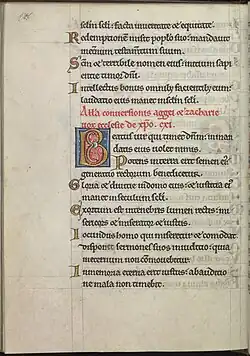 selm seli: facta in ueritate et equitate.
Redemptionem misit poplo suo: mandauit
in eternum testamentum suum.
Scm et terribile nomen eius: initium sapi
entie timor dni.
Intellectus bonus omnibus facientib; eum:
laudatio eius manet in selm seli.
Alla conuersionis aggei et zacharie
uox ecclesie de xpo. cxi.
Beatus uir qui timet dnm: in man
datis eius uolet nimis.
Potens in terra erit semen ei;
generatio rectorum benedicetur.
Gloria et diuitie in domo eius: et iusticia ei;
manet in seculum seli.
Exortum est in tenebris lumen rectis: mi
sericors et miserator et iustus.
Iocundus homo qui miseretur et comodat
disponet sermones suos in iuditio: quia
in eternum non commouebitur.
In memoria eterna erit iustus: ab auditio
ne mala non timebit.